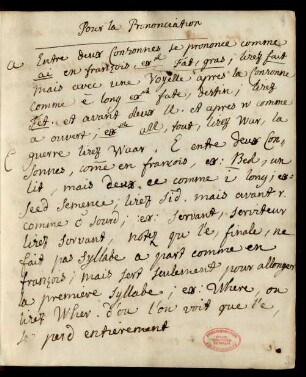 Pour la Prononciation
a Entre deux Consonnes se prononce comme
ai en françois, exle Fat, gras; lisez fait
mais avec une Voyelle après la Consonne
comme é long exle fate, destin; lisez
Fét. et avant deux ll. et après w comme
a ouvert; exle all, tout, lisez War, la
guerre lisez Waar. E entre deux Con-
sonnes, come en francois, ex: Bed, un
Lit, mais deux ee comme i long; ex:
seed semence; lisez sid. mais avant r.
comme é sourd; ex: servant, serviteur
lisez servant, notez que l'e, finale, ne
fait pas syllabe a part comme en
françois; mais sert seulement pour allonger
la première syllabe; ex: Where, ou
lisez Wher. d'ou l'on voit que l'e,
se perd entièrement